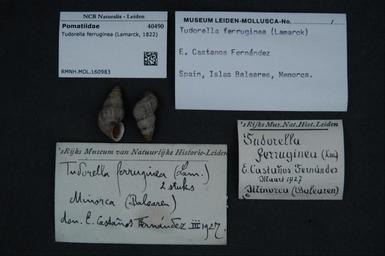 NCB Naturalis - Leiden
Pomatiidae 40490
Tudorella ferruginea (Lamarck, 1822)
RMNH.MOL.160983
MUSEUM LEIDEN-MOLLUSCA-No. /
Tudorella ferruginea (Lamarck)
E. Castanos Fernández
Spain, Islas Baleares, Menorca.
's Rijks Museum van Natuurlijke Historie-Leiden
Tudorella ferruginea (Lam.)
2 stuks
Minorca (Balearen)
don. E. Castaños Fernández III 1927.
's Rijks Mus. Nat. Hist. Leiden
Tudorella
ferruginea (Lm)
E. Castaños Fernández
Maart 1927
Minorca (Balearen)